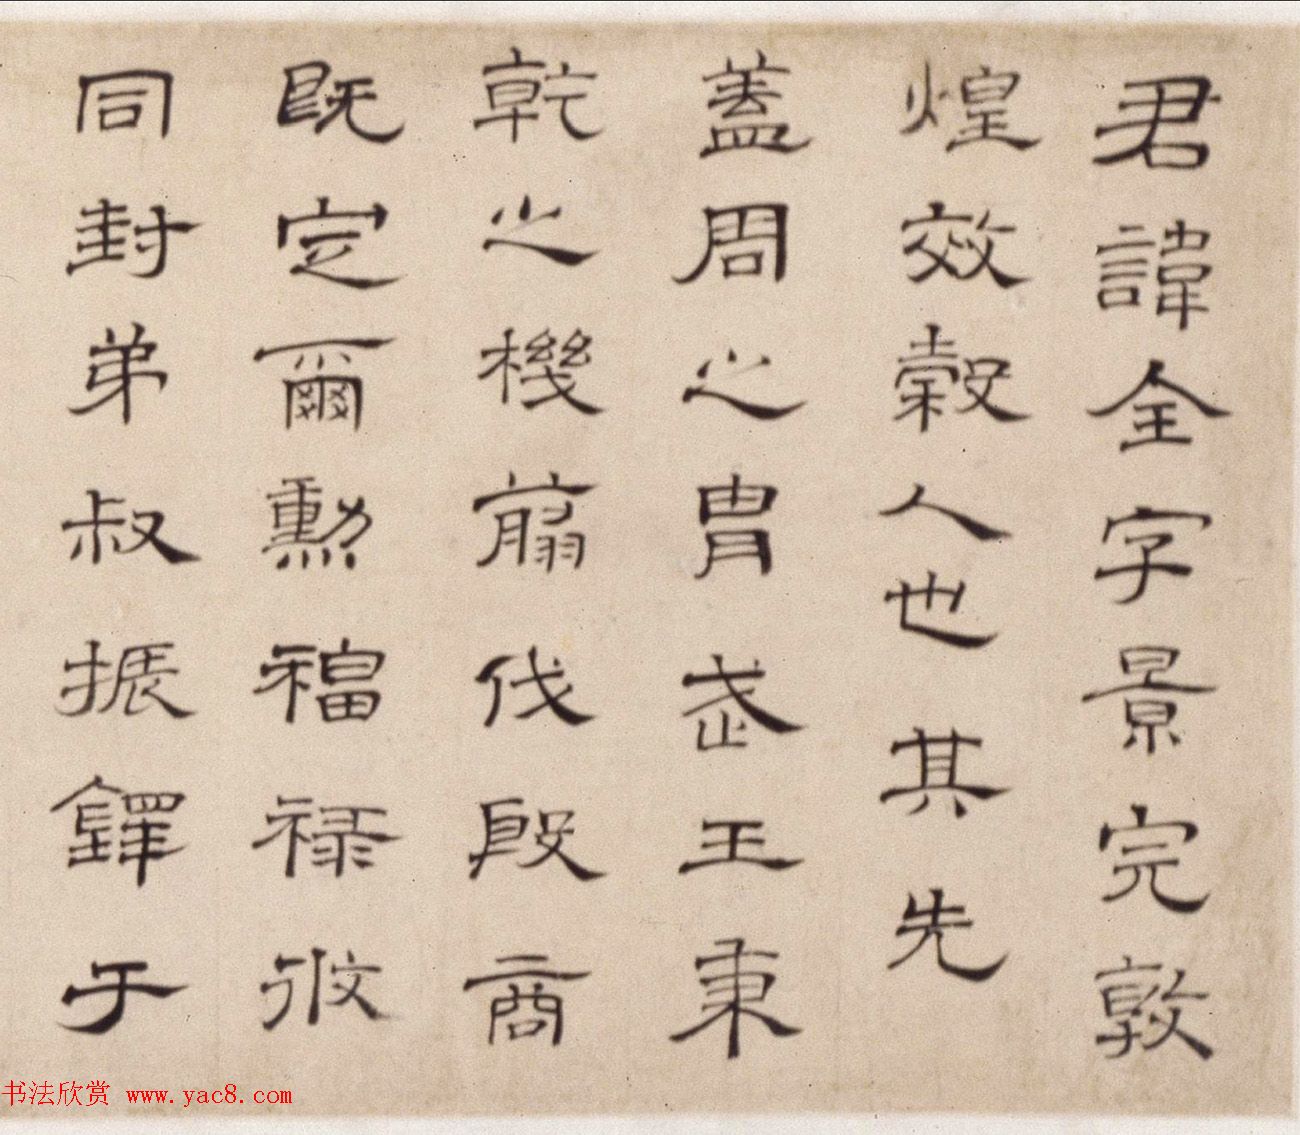 君諱全字景完敦
煌效穀人也其先
蓋周之胄武王秉
乾之機翦伐殷商
既定爾勳福祿攸
同封弟叔振鐸于
书法欣赏 www.yac8.com